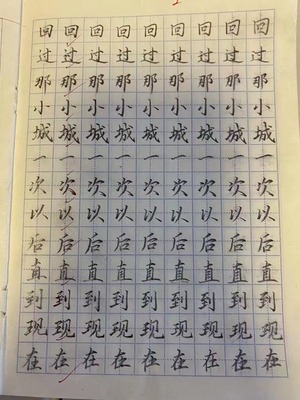 回回回回回回回回回
过过过过过过过过过
那那那那那那那那那
小小小小小小小小小
城城城城城城城城城
一一一一一一一一一
次次次次次次次次次
以以以以以以以以以
后后后后后后后后后
直直直直直直直直直
到到到到到到到到到
现现现现现现现现现
在在在在在在在在在